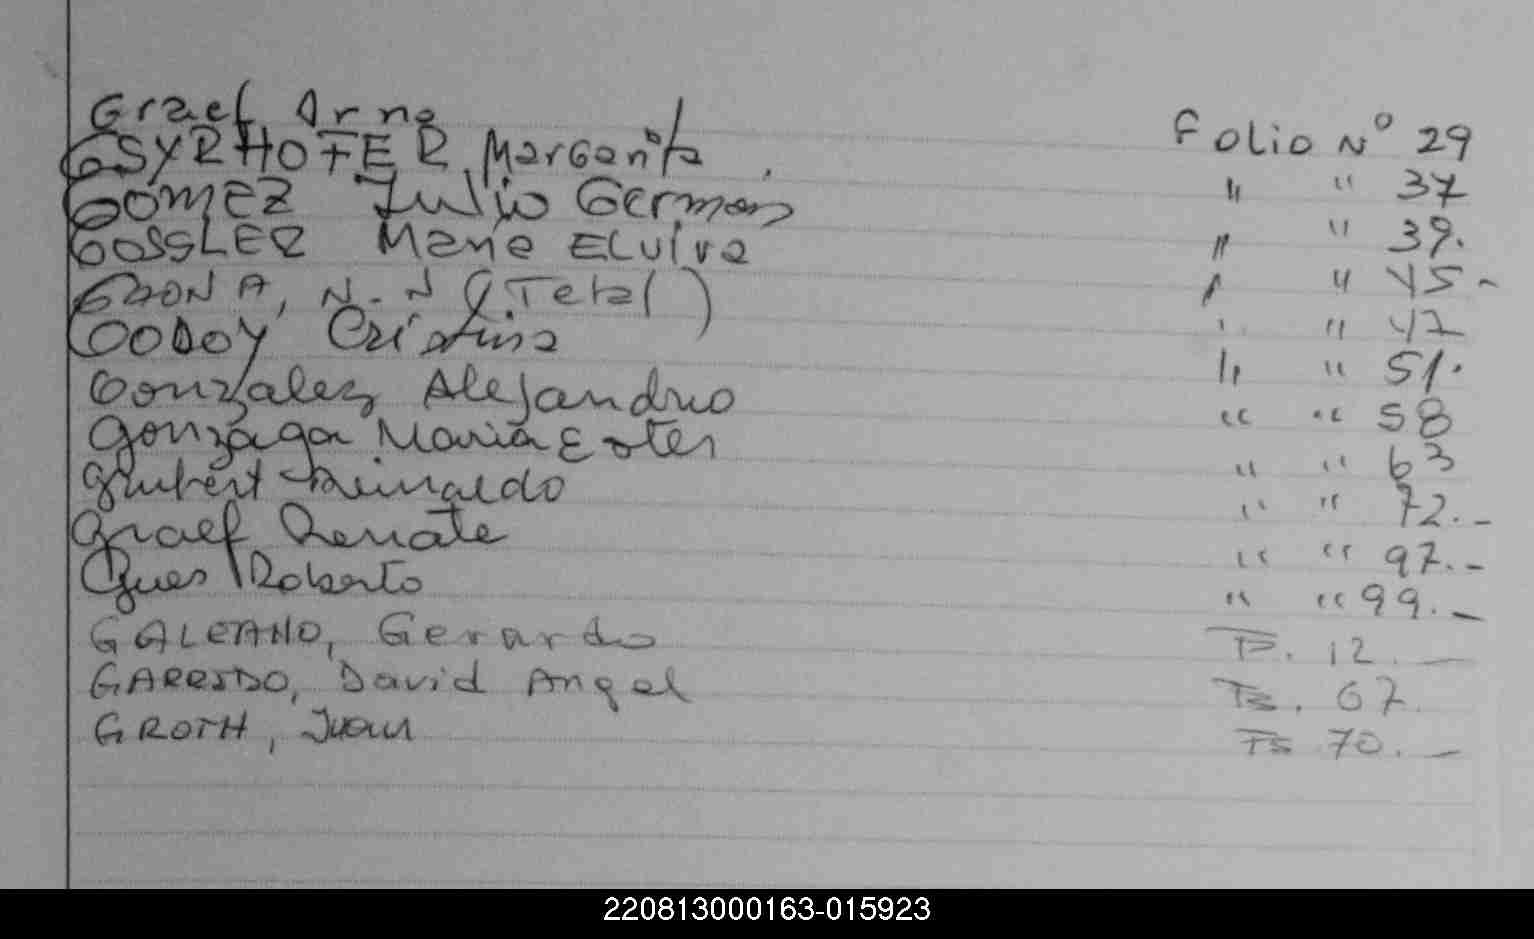 Graef Arno Folio Nº 29
GSYRHOFER Margarita " " 37
GOMEZ Julio German " " 39.
GOSSLER Maria ELvira " " 45.-
GAONA, N-N (Tetal) " " 47
GODOY Cristina " " 51.
Gonzalez Alejandro " " 58
Gonzaga Maria Ester " " 63
Grubert Reinaldo " " 72.-
Graef Renate " " 97.-
Gues Roberto " " 99.-
GALEANO, Gerardo F. 12.-
GARRIDO, David Angel Fs. 67.
GROTH, Juan Fs 70.-
220813000163-015923